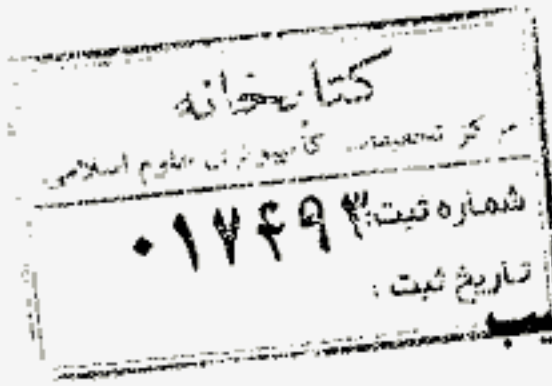 کتابخانه
مرکز تحقیقات کامپیوتری علوم اسلامی
شماره ثبت: ۰۱۷۴۹۳
تاریخ ثبت :